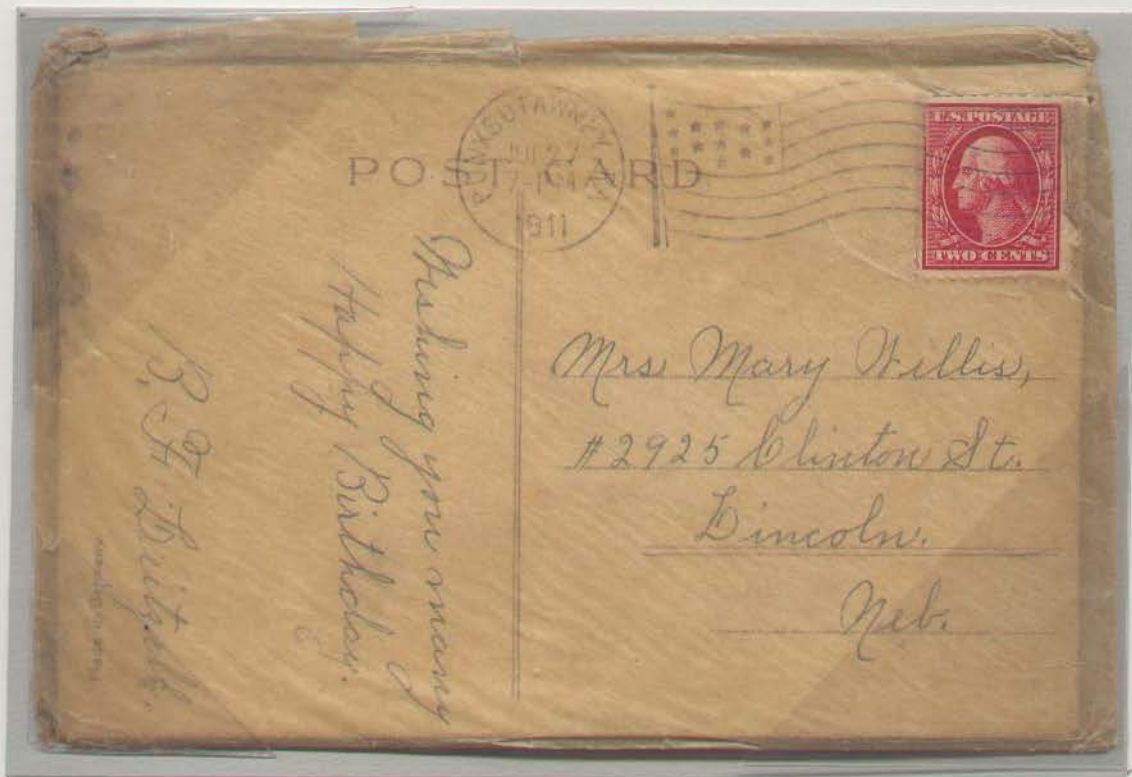 POST CARD
PUNXSUTAWNEY
1911
U.S. POSTAGE
TWO CENTS
Wishing you many
Happy Birthday.
B. F.
Mrs Mary Willis,
#2925 Clinton St.
Lincoln.
Neb.